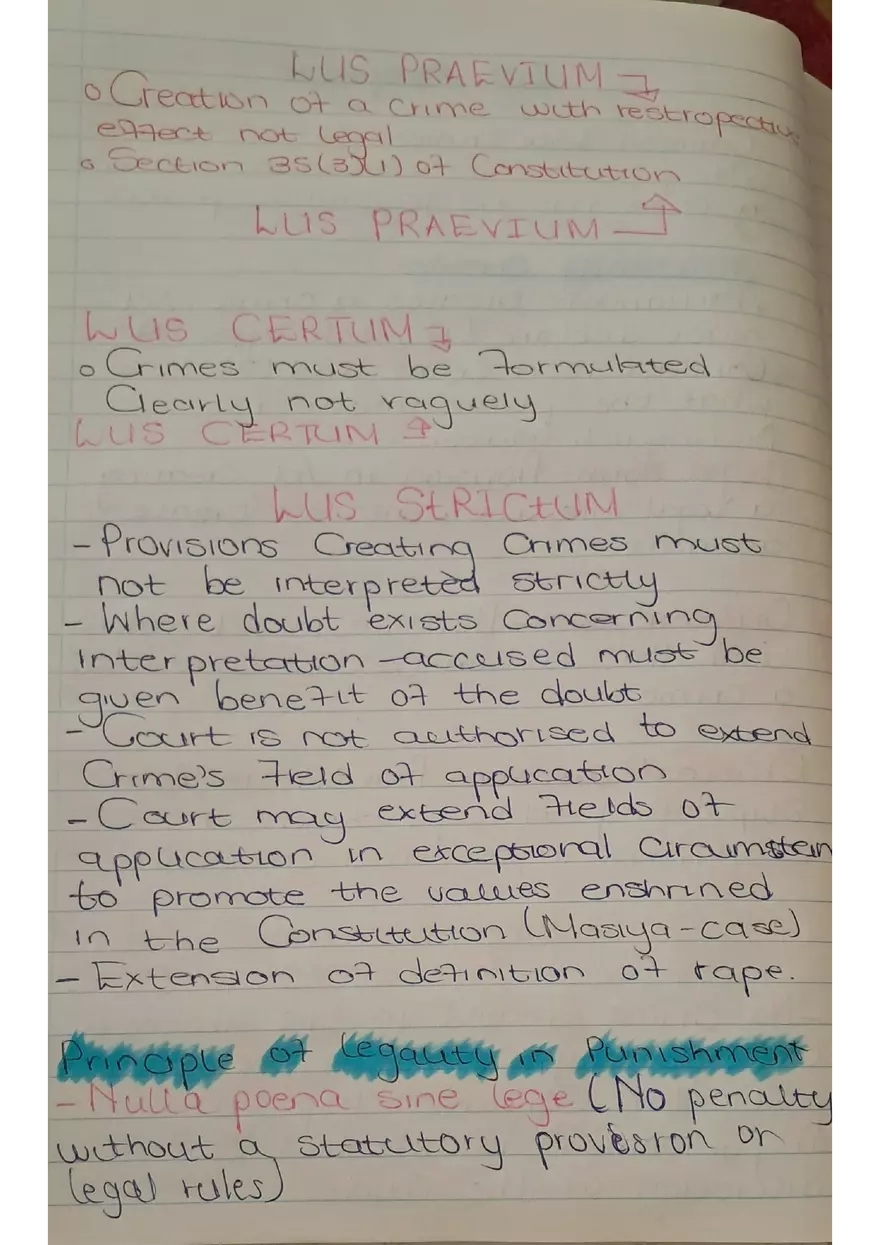 IUS PRAEVIUM
o Creation of a crime with restropective
effect not legal
o Section 35(3)(l) of Constitution
IUS PRAEVIUM
IUS CERTUM
o Crimes must be formulated
Clearly not vaguely
IUS CERTUM
IUS StRICtUM
- Provisions Creating Crimes must
not be interpreted strictly
- Where doubt exists Concerning
interpretation - accused must be
given benefit of the doubt
- Court is not authorised to extend
Crime's field of application
- Court may extend fields of
application in exceptional Circumstan
to promote the values enshrined
in the Constitution (Masiya-case)
- Extension of definition of rape.
Principle of legality in Punishment
- Nulla poena sine lege (No penalty
without a statutory provision or
legal rules)